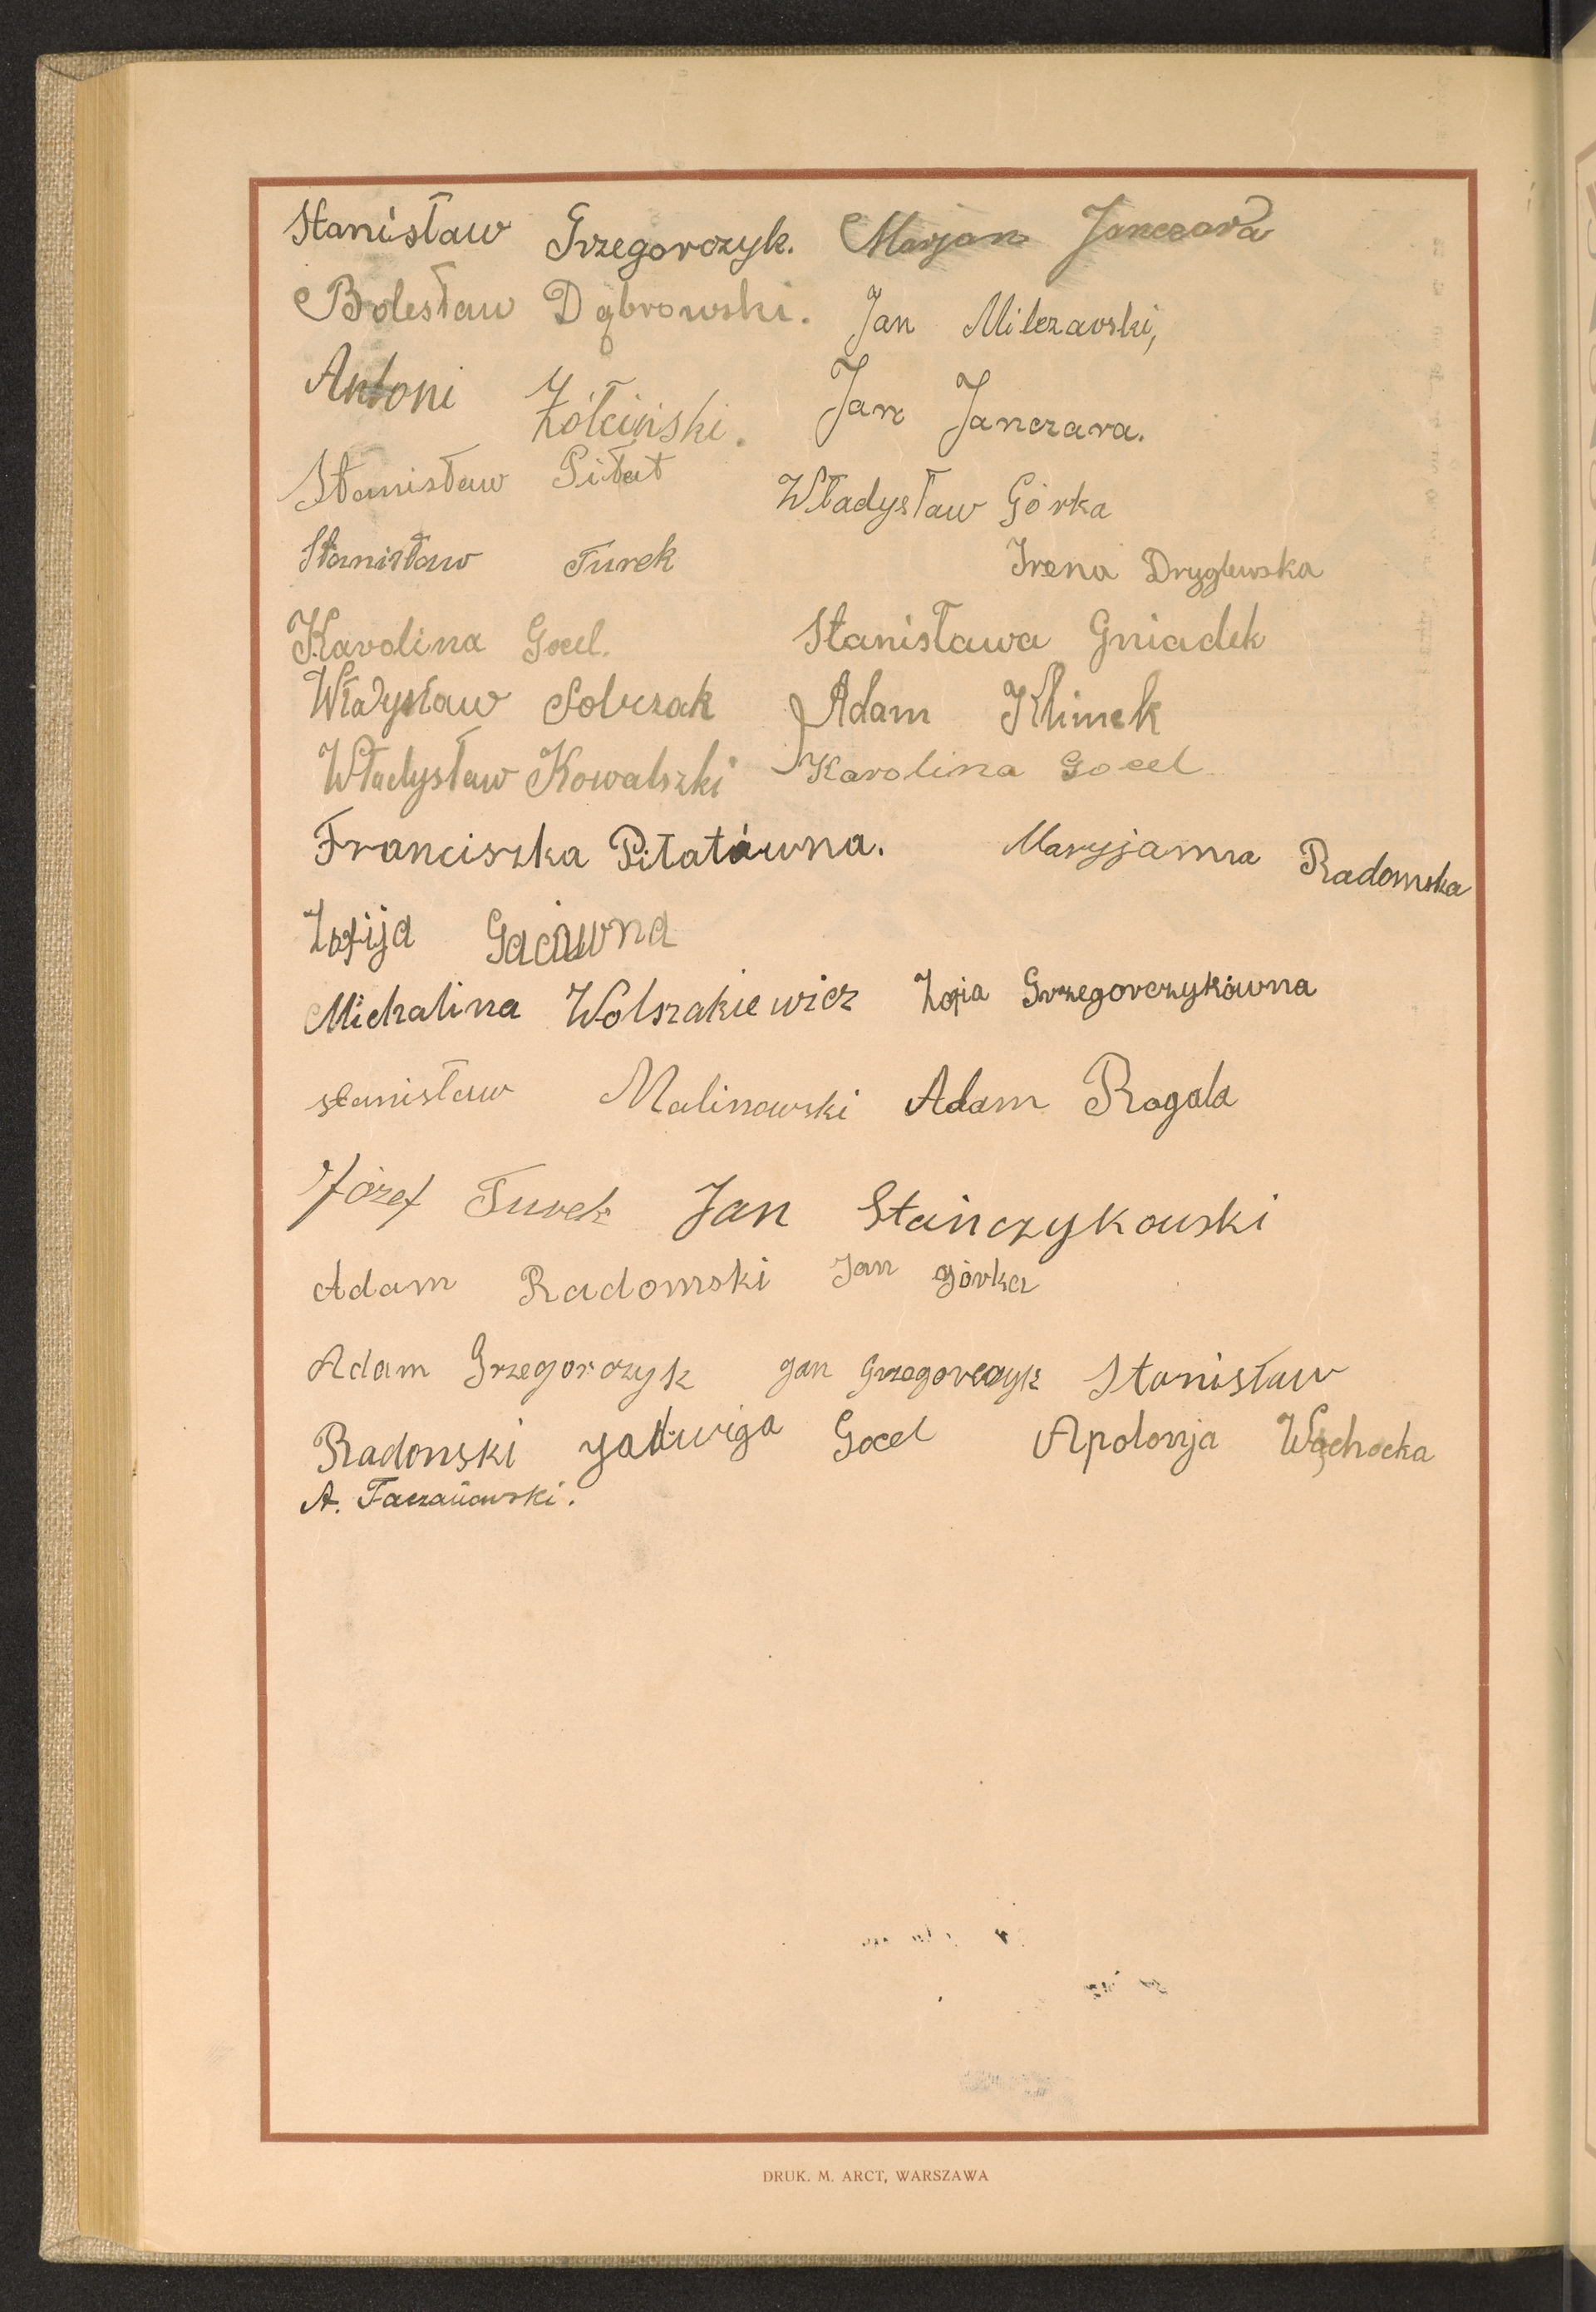 Stanisław Grzegorczyk. Marjan Janczara
Bolesław Dąbrowski. Jan Milczarski,
Antoni Żółciński. Jan Janczara.
Stanisław Piłat Władysław Górka
Stanisław Turek Irena Dryglewska
Karolina Gocel. Stanisława Gniadek
Władysław Sobczak Adam Klimek
Władysław Kowalszki Karolina Gocel
Franciszka Piłatówna. Maryjanna Radomska
Zofija Gacówna
Michalina Wolszakiewicz Zofia Grzegorczykówna
stanisław Malinowski Adam Rogala
Józef Turek Jan Stańczykowski
Adam Radomski Jan górka
Adam Grzegorczyk Jan Grzegorczyk Stanisław
Radomski Jadwiga Gocel Apolonja Wąchocka
A. Taczanowski.
DRUK. M. ARCT, WARSZAWA